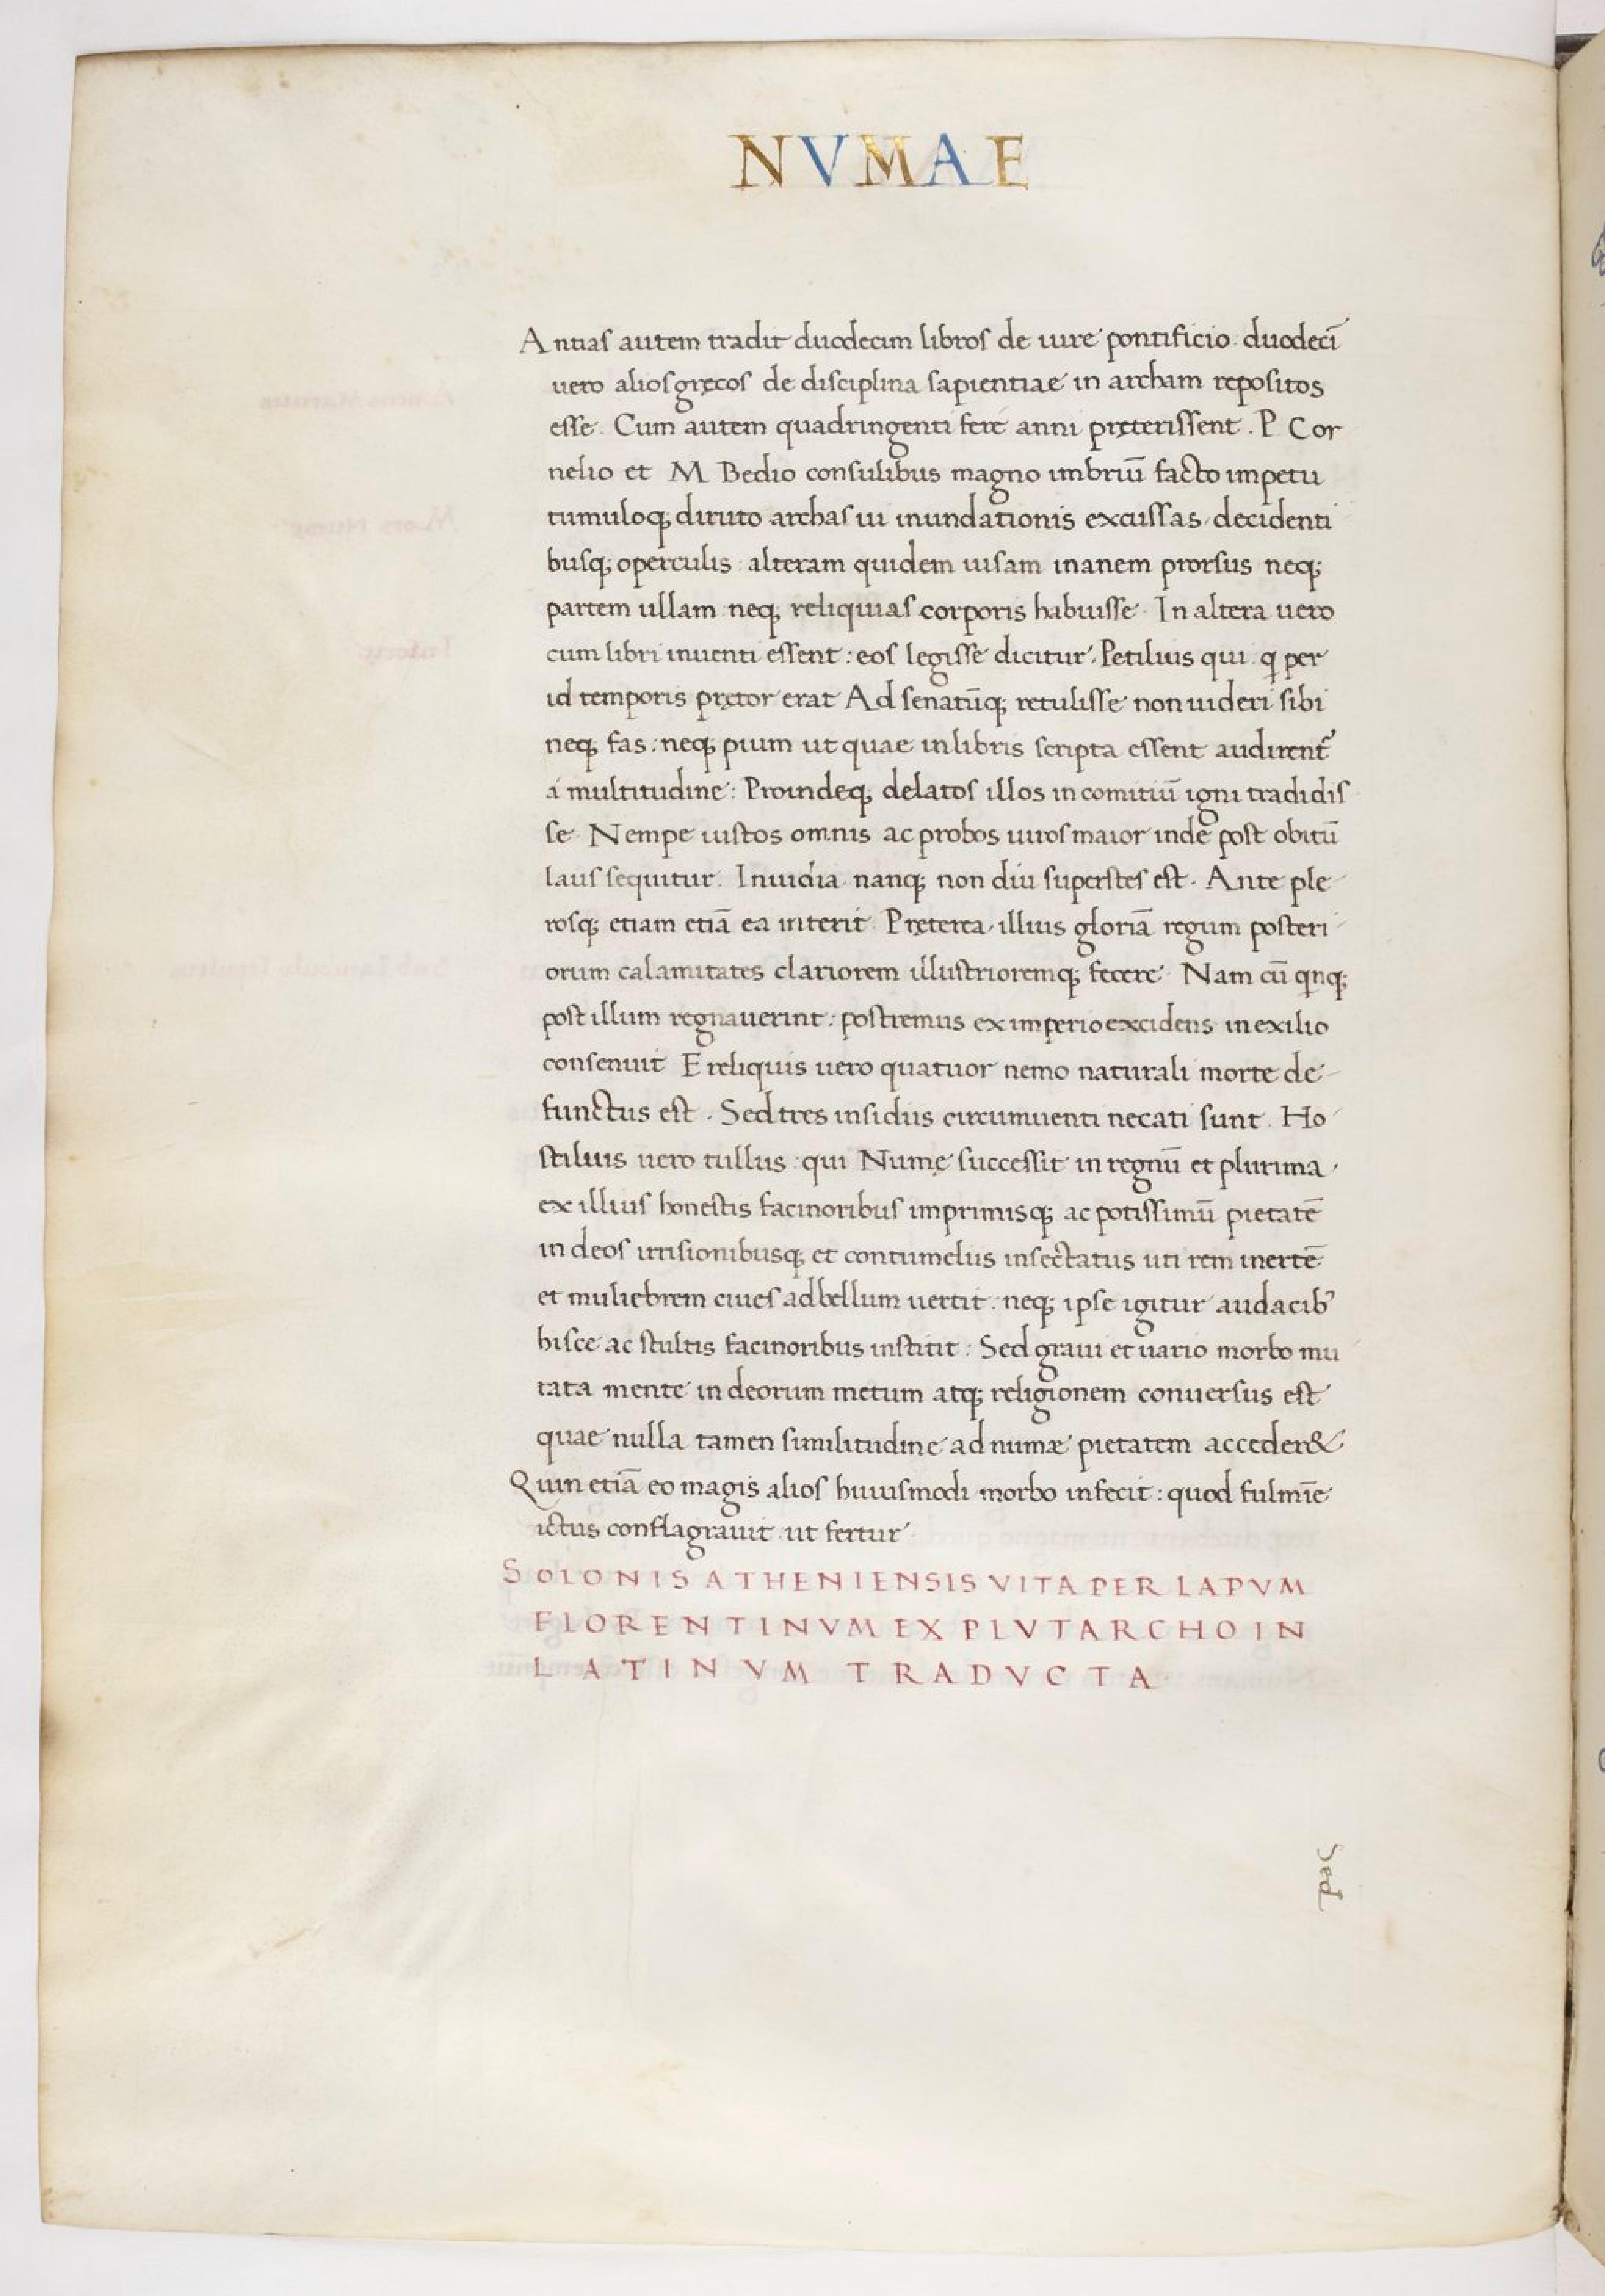 NVMAE
Antias autem tradit duodecim libros de iure pontificio: duodecī
uero alios gręcos de disciplina sapientiae in archam repositos
esse. Cum autem quadringenti fere anni pręterissent. P. Cor
nelio et M Bedio consulibus magno imbriū facto impetu
tumuloq; diruto archas ui inundationis excussas, decidenti
busq; operculis: alteram quidem uisam inanem prorsus neq;
partem ullam neq, reliquias corporis habuisse. In altera uero
cum libri inuenti essent: eos legisse dicitur, Petilius qui ꝗ per
id temporis prętor erat Ad senatūq; retulisse non uideri sibi
neq, fas: neq; pium ut quae in libris scripta essent audirent᷑
á multitudine: Proindeq, delatos illos in comitiū igni tradidis
se. Nempe iustos omnis ac probos uiros maior inde post obitū
laus sequitur. Inuidia nanq; non diu superstes est. Ante ple
rosq; etiam etiā ea interit. Pręterea, illius gloriā regum posteri
orum calamitates clariorem illustrioremq; fecere. Nam cū qnq;
post illum regnauerint: postremus ex imperio excidens in exilio
consenuit. E reliquis uero quatuor nemo naturali morte de
functus est. Sed tres insidiis circumuenti necati sunt. Ho
stilius uero tullus: qui Numę successit in regnū et plurima,
ex illius honestis facinoribus imprimisq; ac potissimū pietatē
in deos irrisionibusq; et contumeliis insectatus uti rem inertē
et muliebrem ciues ad bellum uertit: neq; ipse igitur audacib᾽
hisce ac stultis facinoribus institit: Sed graui et uario morbo mu
tata mente in deorum metum atq; religionem conuersus est
quae nulla tamen similitudine ad numæ pietatem acceder&
Quin etiā eo magis alios huiusmodi morbo infecit: quod fulmīe
ictus conflagrauit ut fertur.
SOLONIS ATHENIENSIS VITA PER LAPVM
FLORENTINVM EX PLVTARCHO IN
LATINVM TRADVCTA
Sed